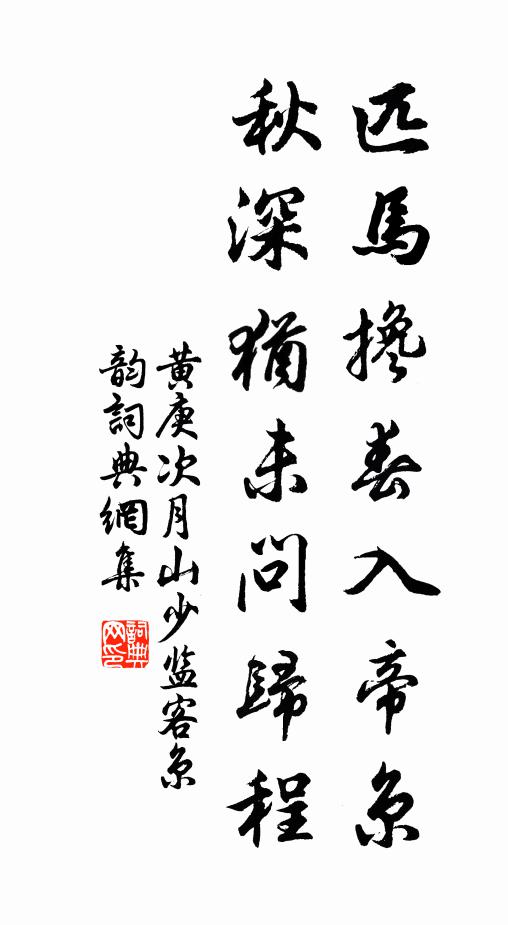 匹馬攙春入帝京
秋深猶未問歸程
黄庚次月山少监客京
韵詞典網集
詞典网印